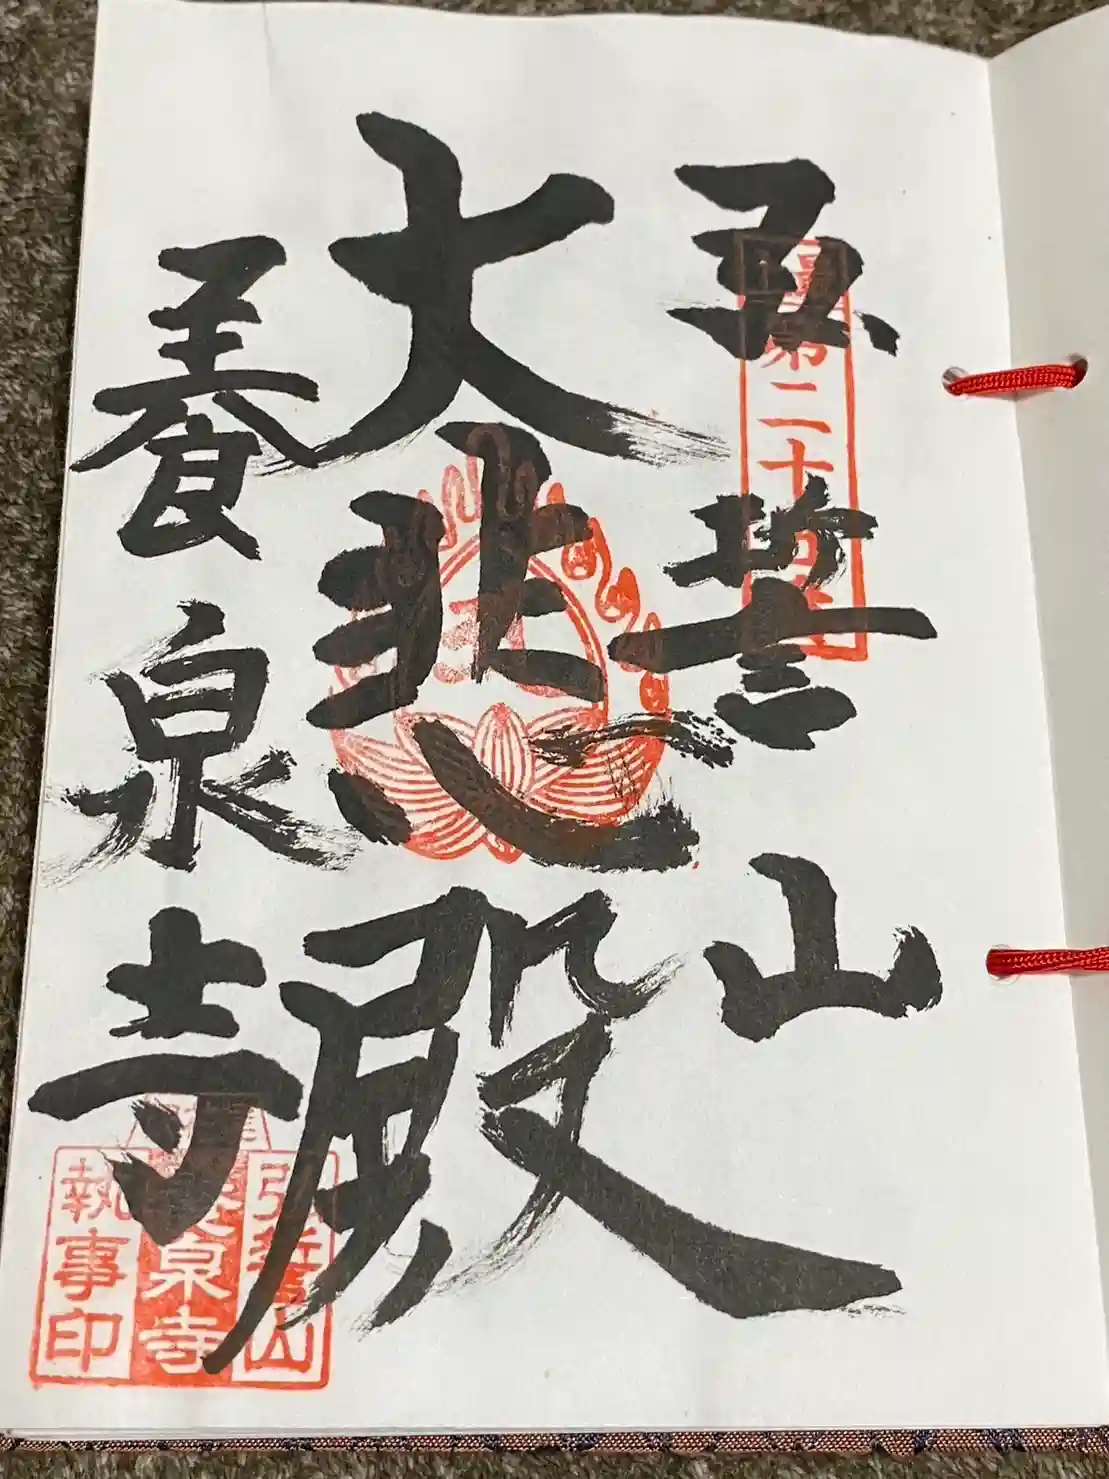 弘誓山
第二十
大悲殿
養泉寺
弘誓山
養泉寺
執事印